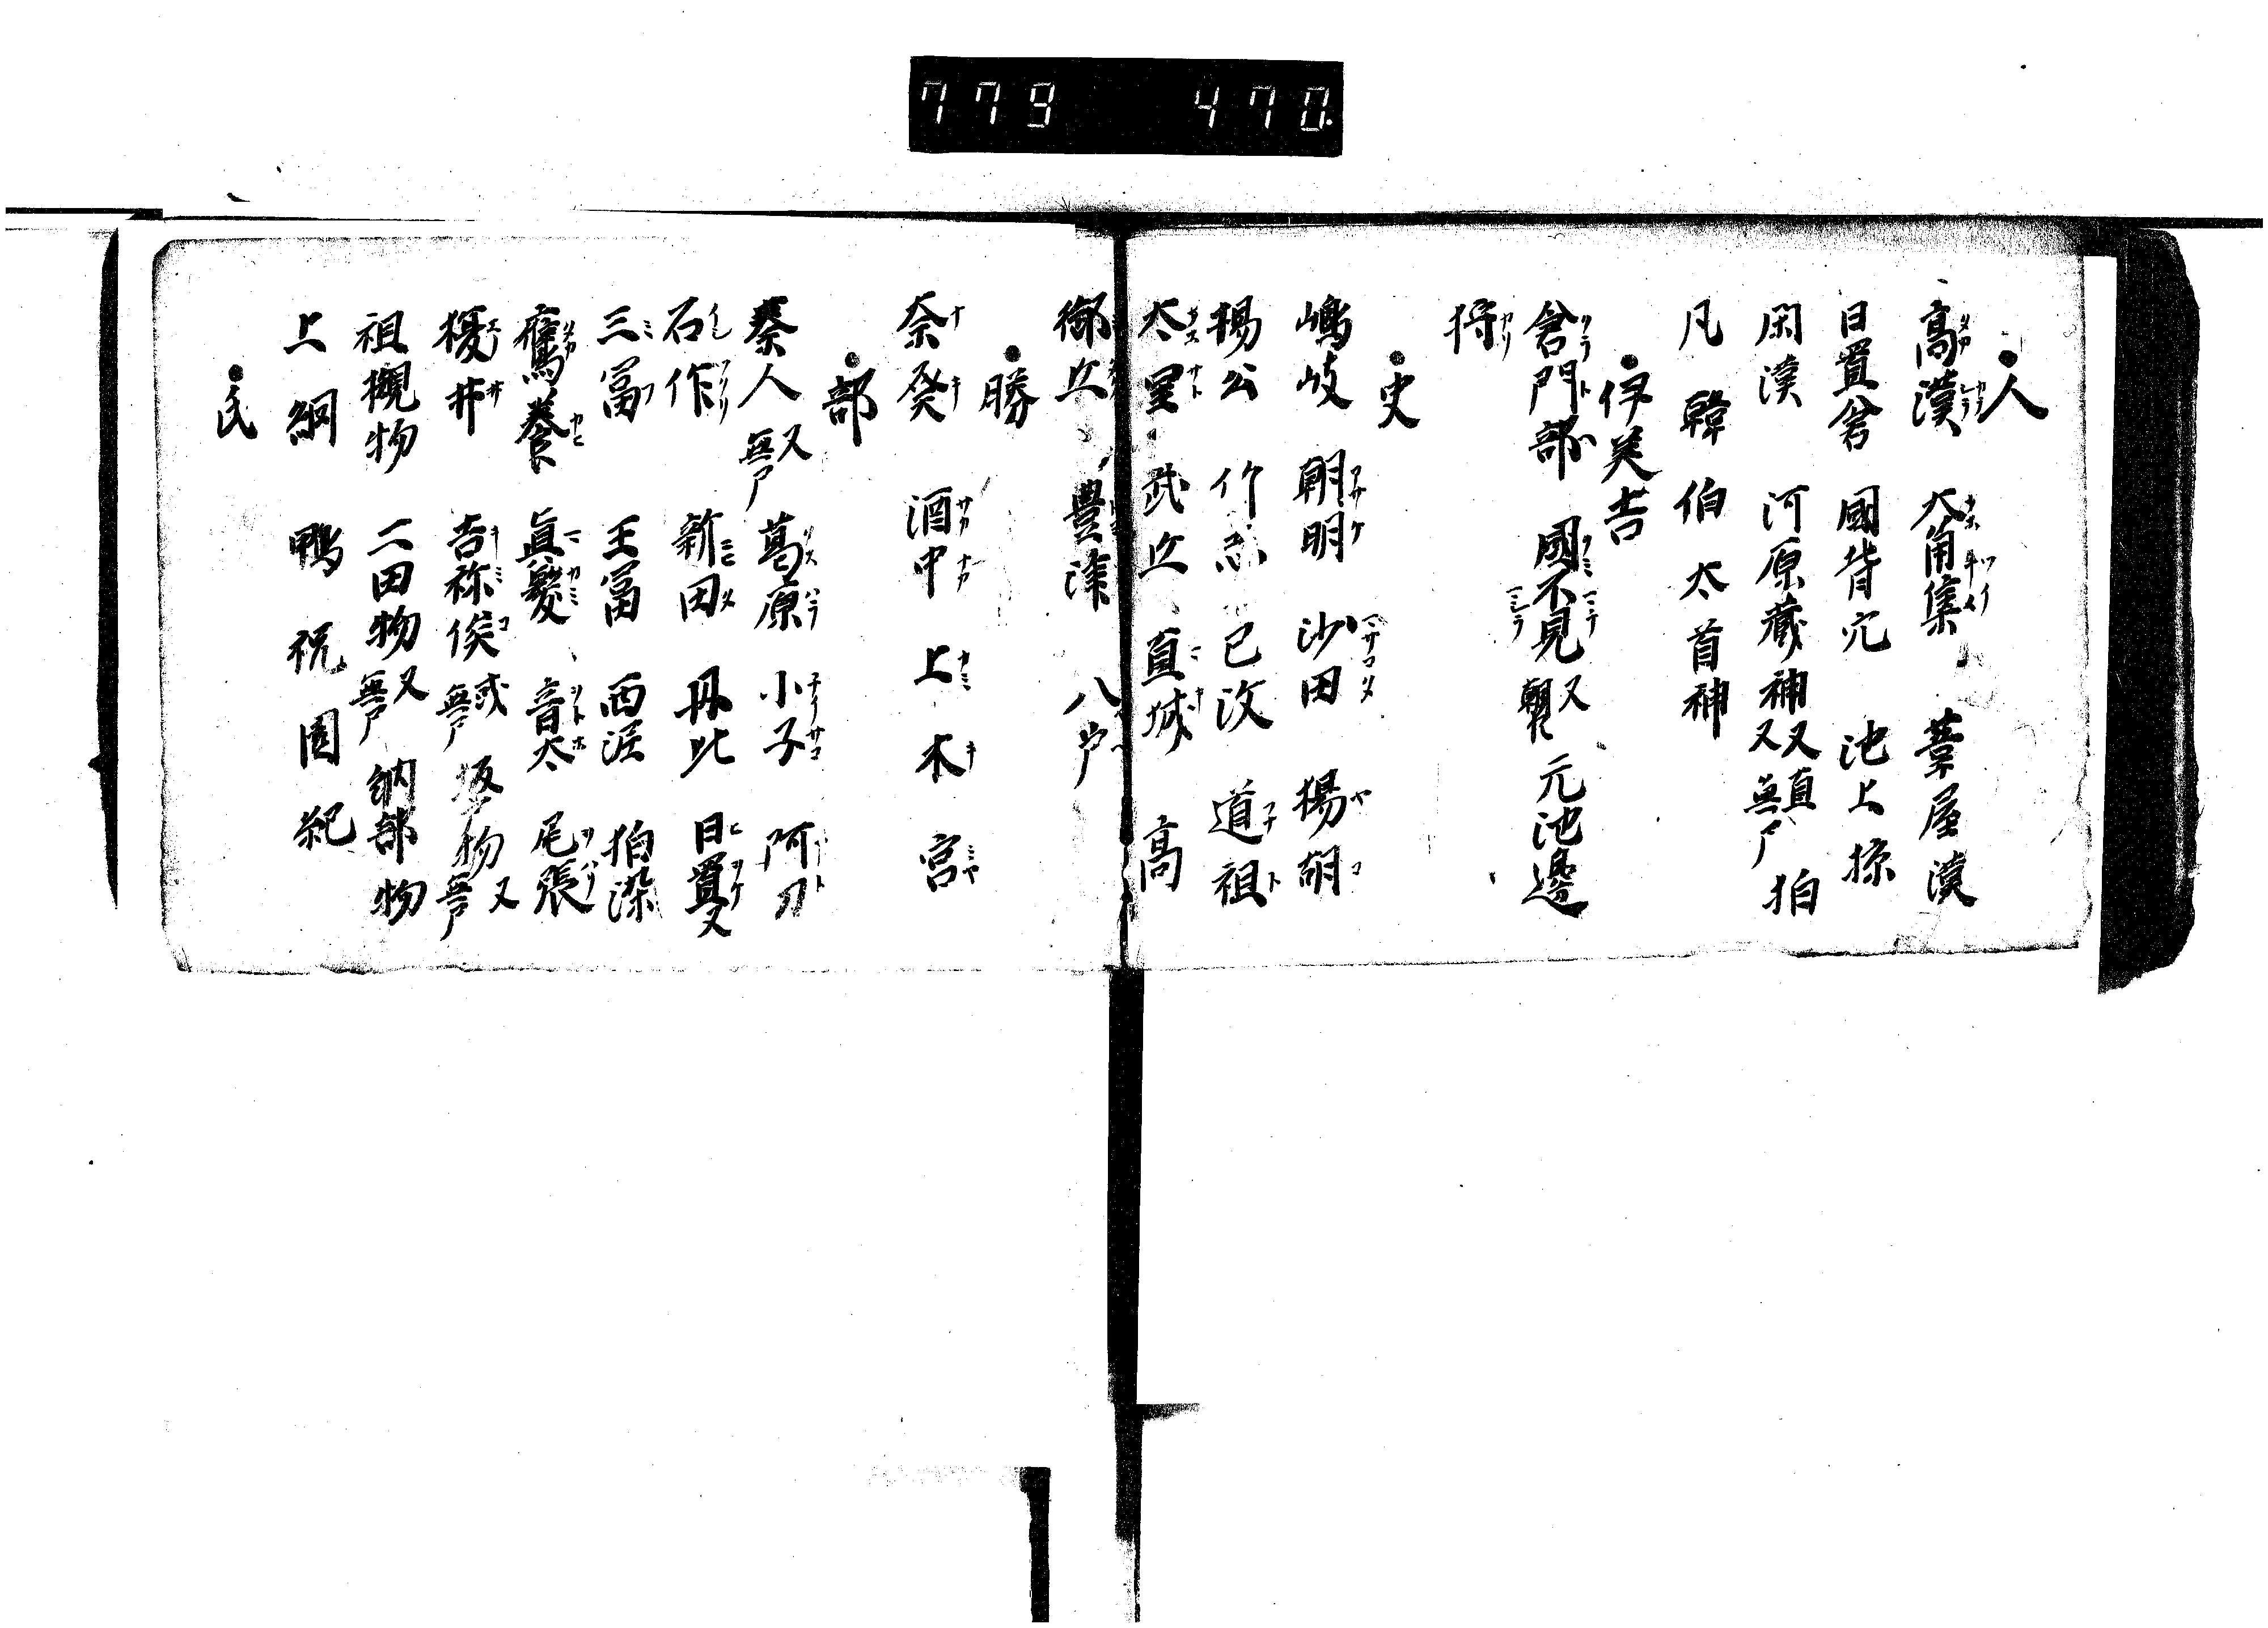 779 470
●人
高漢 大角集 葦屋漢
日置倉 國背宍 池上椋
閑漢 河原藏神 又直 又無尸 狛
凡 韓 伯 太 首 神
●伊美吉
倉門部 國不見 又 元池邊
狩
●史
嶋岐 朝明 沙田 楊胡
楊公 竹志 己汶 道祖
太里 武丘 直城 高
御立 豊津 八戸
●勝
奈癸 酒中 上 木 宮
●部
秦人 又無尸 葛原 小子 阿刀
石作 新田 丹比 日置 又
三富 王富 西泥 狛染
鷹養 真髪 音太 尾張
榎井 吉祢侯 或無尸 坂物 又無尸
祖槻物 二田物 又無尸 納部物
上 網 鴨 祝 園 紀
●民